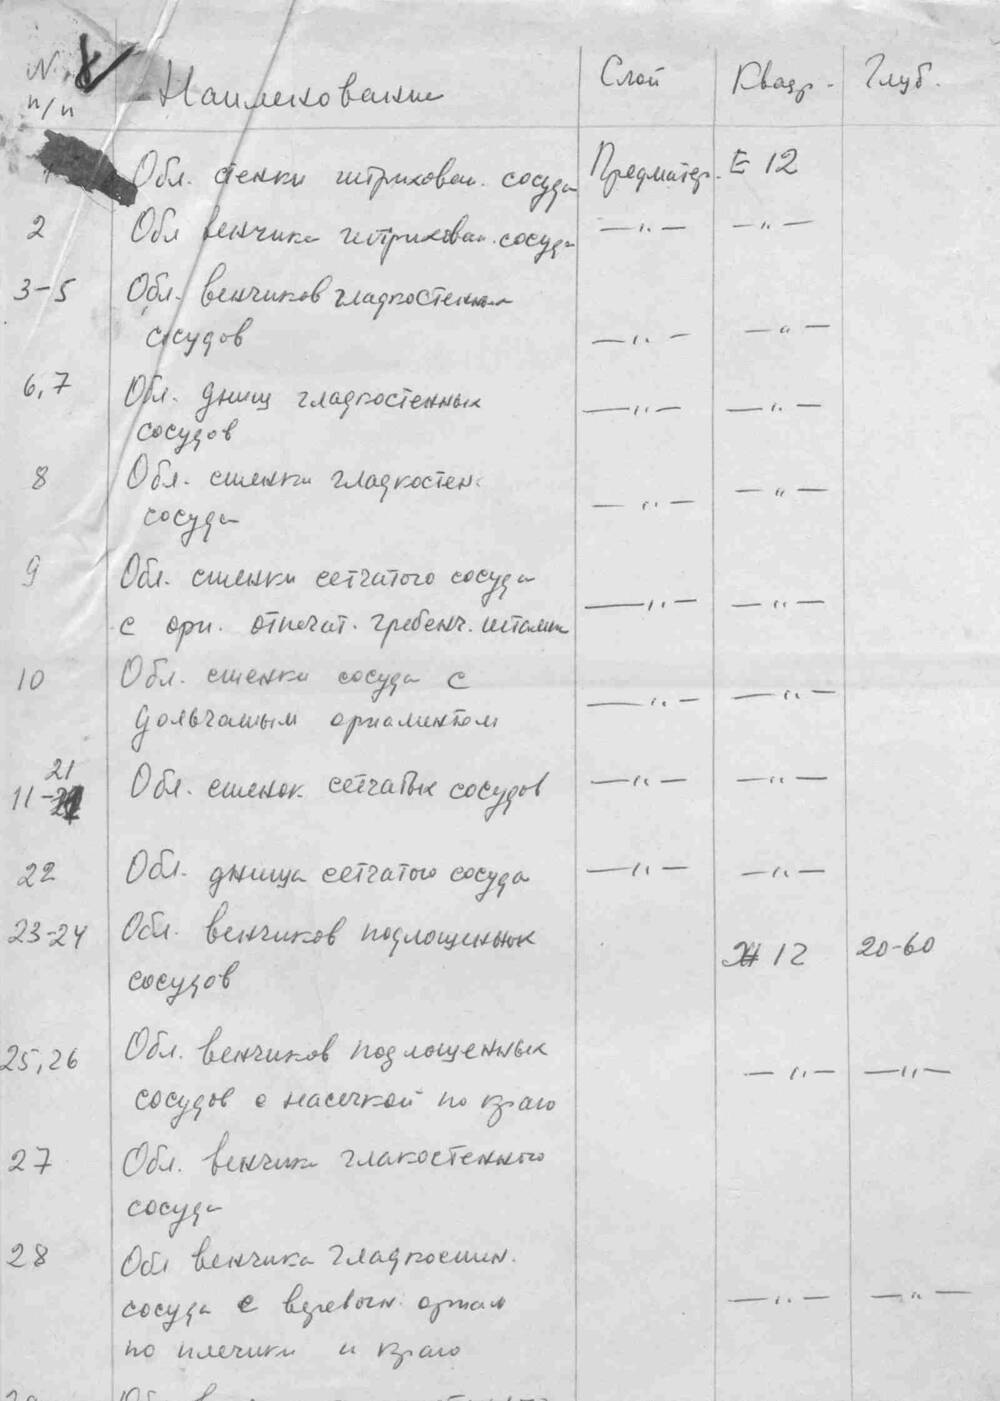 № 8 Наименование Слой Квадр. Глуб.
п/п
Обл. стенки штрихован. сосуда Предматер. Е 12
2 Обл венчика штрихован. сосуда —"— —"—
3-5 Обл. венчиков гладкостенных
сосудов —"— —"—
6,7 Обл. днищ гладкостенных —"— —"—
сосудов
8 Обл. стенки гладкостен.
сосуда —"— —"—
9 Обл. стенки сетчатого сосуда
с орн. отпечат. гребенч. штампа —"— —"—
10 Обл. стенки сосуда с
дольчатым орнаментом —"— —"—
21
11- Обл. стенок сетчатых сосудов —"— —"—
22 Обл. днища сетчатого сосуда —"— —"—
23-24 Обл. венчиков подлощенных
сосудов Ж 12 20-60
25,26 Обл. венчиков подлощенных
сосудов с насечкой по краю —"— —"—
27 Обл. венчика глакостенного
сосуда
28 Обл венчика гладкостен.
сосуда с веревочн. орнам —"— —"—
по плечики и краю